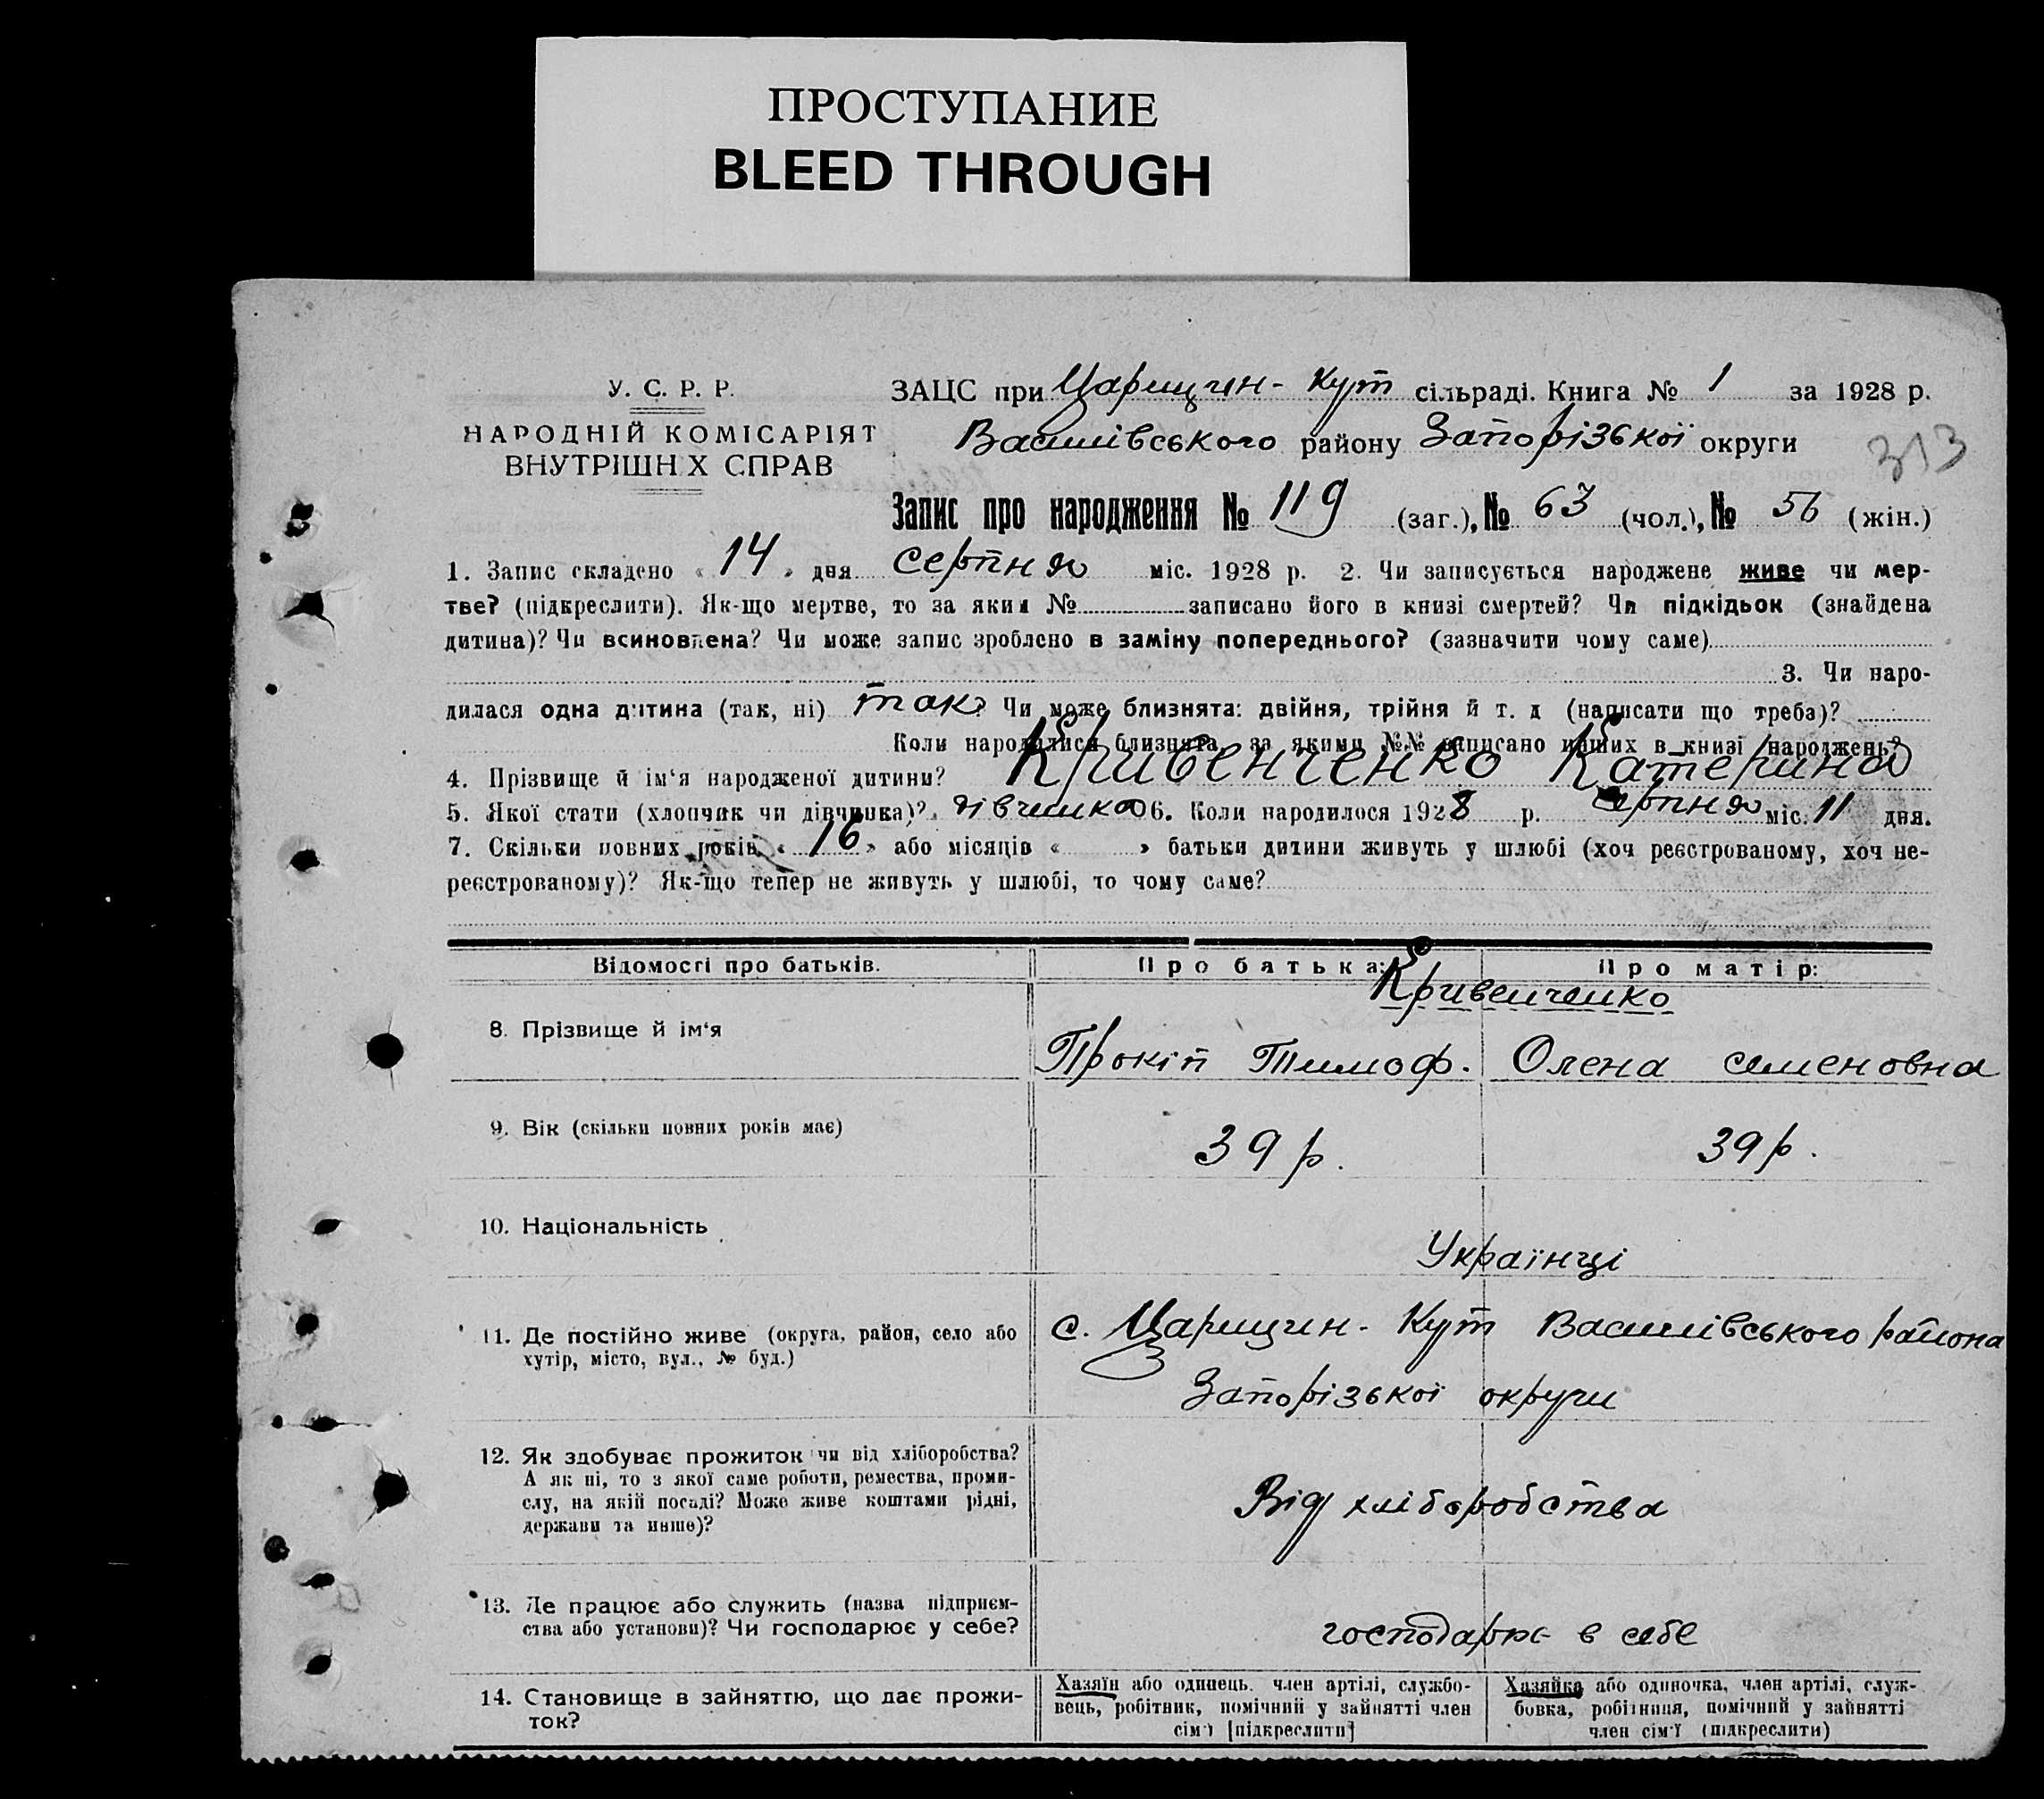 ПРОСТУПАНИЕ
BLEED THROUGH
У. С. Р. Р.
НАРОДНІЙ КОМІСАРІЯТ
ВНУТРІШН Х СПРАВ
ЗАЦС при Царицин-Кут сільраді. Книга № 1 за 1928 р.
Василівського району Запорізької округи
313
Запис про народження № 119 (заг.), № 63 (чол.), № 56 (жін.)
1. Запис складено « 14 » дня серпня міс. 1928 р. 2. Чи записується народжене живе чи мер-
тве? (підкреслити). Як-що мертве, то за яким № записано його в книзі смертей? Чи підкідьок (знайдена
дитина)? Чи всиновлена? Чи може запис зроблено в заміну попереднього? (зазначити чому саме)
3. Чи наро-
дилася одна дитина (так, ні) так? Чи може близнята: двійня, трійня й т. д (написати що треба)?
Коли народилися близнята, за якими №№ записано инших в книзі народжень?
4. Прізвище й ім‘я народженої дитини? Кривенченко Катерина
5. Якої стати (хлопчик чи дівчинка)? дівчинка 6. Коли народилося 1928 р. серпня міс. 11 дня.
7. Скільки повних років « 16 » або місяців « » батьки дитини живуть у шлюбі (хоч реєстрованому, хоч не-
реєстрованому)? Як-що тепер не живуть у шлюбі, то чому саме?
Відомості про батьків. Про батька: Про матір:
Кривенченко
8. Прізвище й ім‘я Прокіп Тимоф. Олена Семеновна
9. Вік (скільки повних років має) 39 р. 39 р.
10. Національність Українці
11. Де постійно живе (округа, район, село або с. Царицин-Кут Василівського района
хутір, місто, вул., № буд.) Запорізької округи
12. Як здобуває прожиток чи від хліборобства?
А як ні, то з якої саме роботи, ремества, проми-
слу, на якій посаді? Може живе коштами рідні, Від хліборобства
держави та инше)?
13. Де працює або служить (назва підприєм-
ства або установи)? Чи господарює у себе? господарює в себе
14. Становище в зайняттю, що дає прожи-
ток?
Хазяїн або одинець, член артілі, службо-
вець, робітник, помічний у зайнятті член
сім'ї [підкреслити]
Хазяйка або одиночка, член артілі, служ-
бовка, робітниця, помічний у зайнятті
член сім'ї (підкреслити)